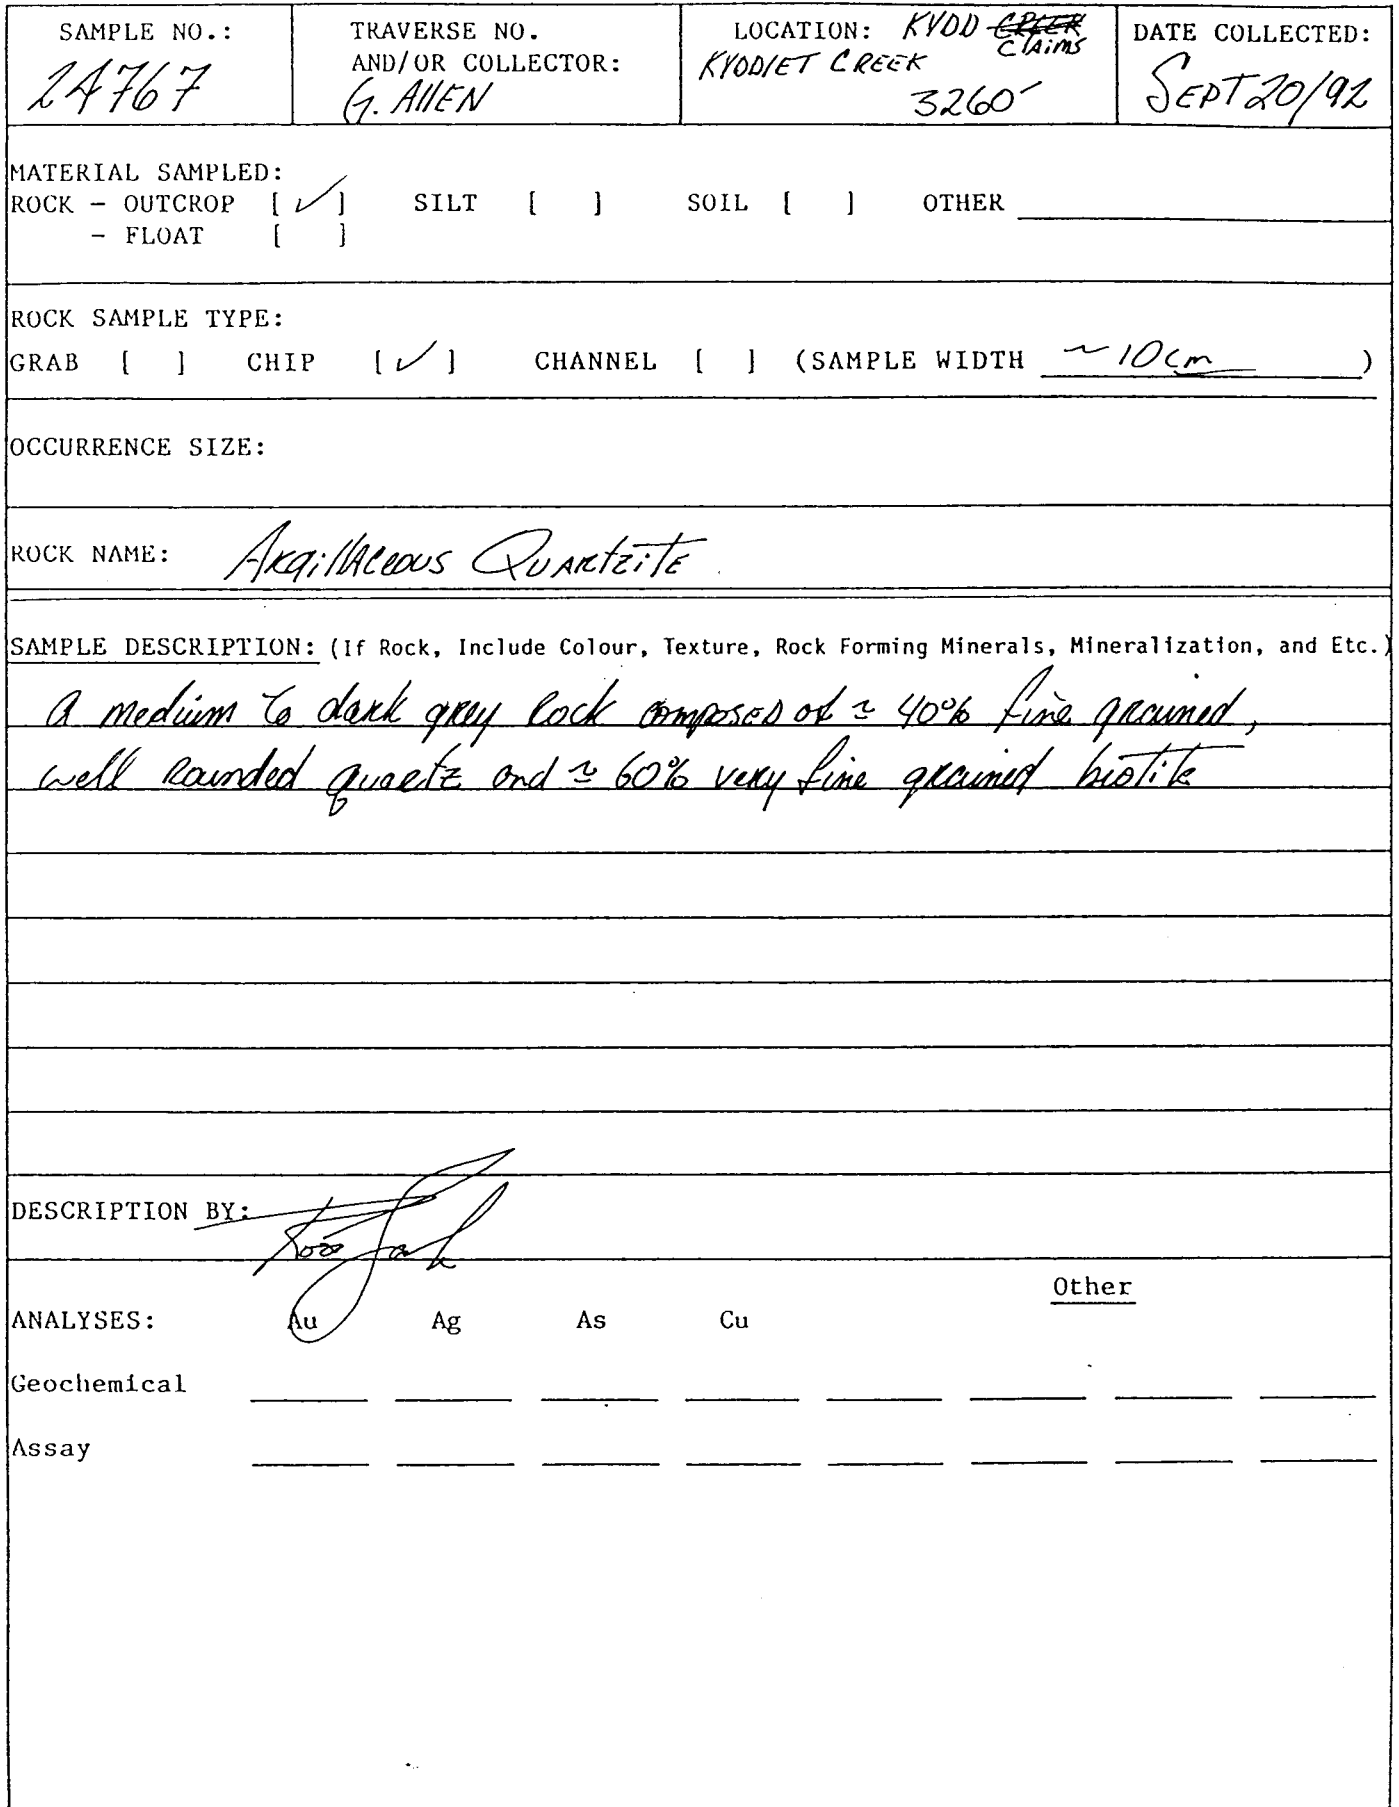 SAMPLE NO.:
24767
TRAVERSE NO.
AND/OR COLLECTOR:
G. AllEN
LOCATION: KYDD CREEK
ClAims
KYDD/ET CREEK
3260'
DATE COLLECTED:
SEPT 20/92
MATERIAL SAMPLED:
ROCK - OUTCROP [ ✓ ] SILT [ ] SOIL [ ] OTHER
- FLOAT [ ]
ROCK SAMPLE TYPE:
GRAB [ ] CHIP [ ✓ ] CHANNEL [ ] (SAMPLE WIDTH ~10cm )
OCCURRENCE SIZE:
ROCK NAME: ARgillAceous QuARtzite
SAMPLE DESCRIPTION: (If Rock, Include Colour, Texture, Rock Forming Minerals, Mineralization, and Etc.)
A medium to dark grey Rock composed of ≃ 40% fine grained,
well Rounded quartz and ≃ 60% very fine grained biotite
DESCRIPTION BY:
Other
ANALYSES: Au Ag As Cu
Geochemical
Assay